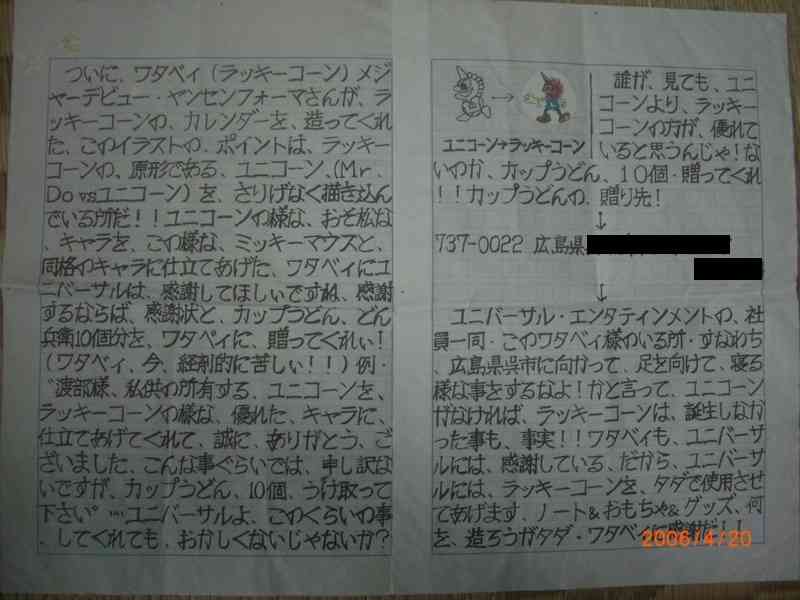 ついに、ワタベィ（ラッキーコーン）メジ
ャーデビュー・ヤンセンフォーマさんが、ラ
ッキーコーンの、カレンダーを、造ってくれ
た、このイラストの、ポイントは、ラッキー
コーンの、原形である、ユニコーン、（Mr.
Do vsユニコーン）を、さりげなく描き込ん
でいる所だ！！ユニコーンの様な、おそ松な
、キャラを、この様な、ミッキーマウスと、
同格のキャラに仕立てあげた、ワタベィにユ
ニバーサルは、感謝してほしいですね、感謝
するならば、感謝状と、カップうどん、どん
兵衛10個分を、ワタベィに、贈ってくれぃ！
（ワタベィ、今、経剤的に苦しぃ！！）例・
〝渡部様、私供の所有する、ユニコーンを、
ラッキーコーンの様な、優れた、キャラに、
仕立てあげてくれて、誠に、ありがとう、ご
ざいました、こんな事ぐらいでは、申し訳な
いですが、カップうどん、10個、うけ取って
下さい〟…ユニバーサルよ、このくらいの事
、してくれても、おかしくないじゃないか？
ユニコーン→ラッキーコーン
誰が、見ても、ユニ
コーンより、ラッキー
コーンの方が、優れて
いると思うんじゃ！な
いのか、カップうどん、10個・贈ってくれ
！！カップうどんの、贈り先！
↓
737-0022 広島県
↓
ユニバーサル・エンタティンメントの、社
員一同・このワタベィ様のいる所・すなわち
、広島県呉市に向かって、足を向けて、寝る
様な事をするなよ！かと言って、ユニコーン
がなければ、ラッキーコーンは、誕生しなか
った事も、事実！！ワタベィも、ユニバーサ
ルには、感謝している、だから、ユニバーサ
ルには、ラッキーコーンを、タダで使用させ
てあげます、ノート&おもちゃ&グッズ、何
を、造ろうがタダ・ワタベィに感謝だ！！
2006/4/20